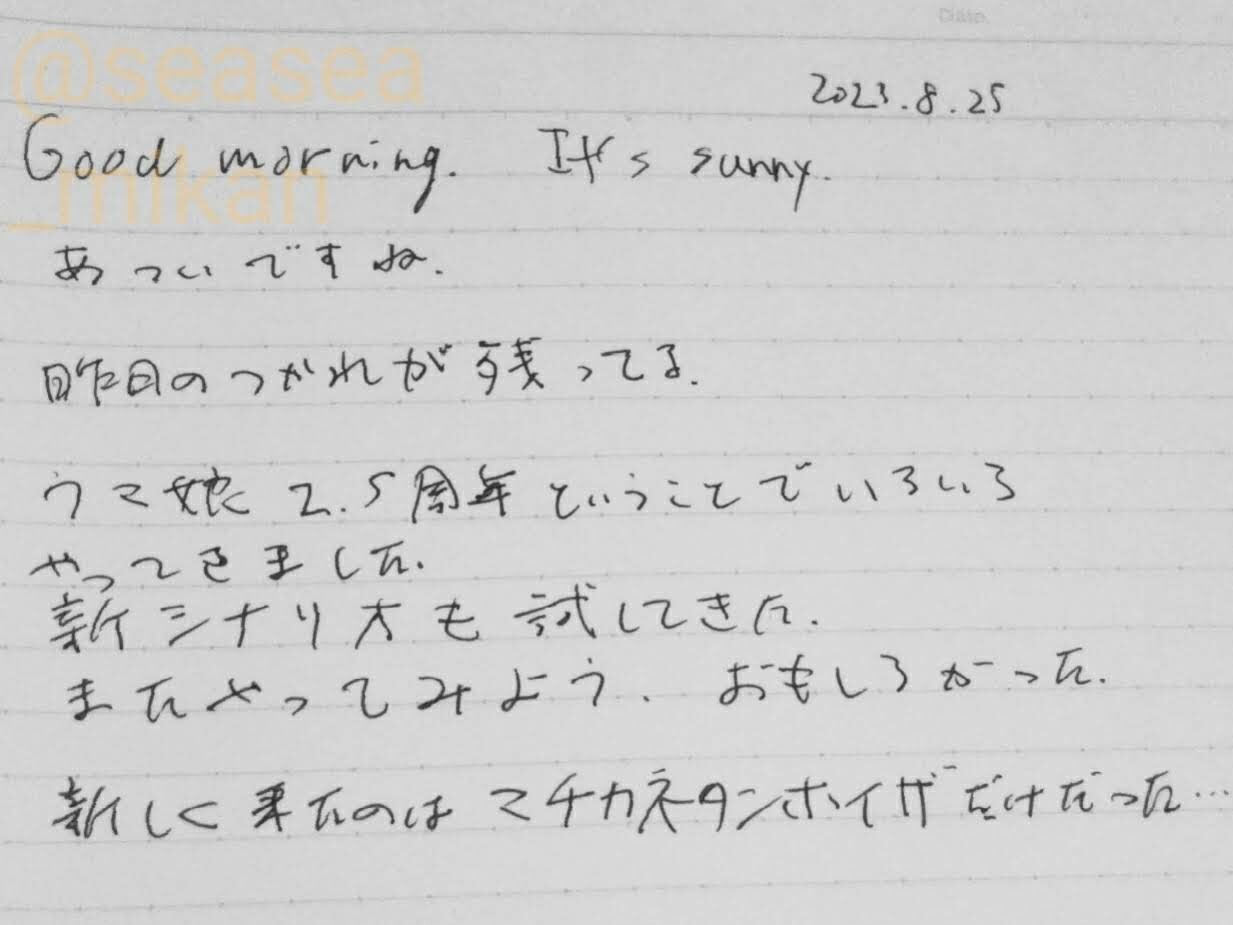 Date
@seasea
_mikan
2023.8.25
Good morning. It's sunny.
あついですね.
昨日のつかれが残ってる.
ウマ娘 2.5周年ということでいろいろ
やってきました.
新シナリオも試してきた.
またやってみよう. おもしろかった.
新しく来たのはマチカネタンホイザだけだった…